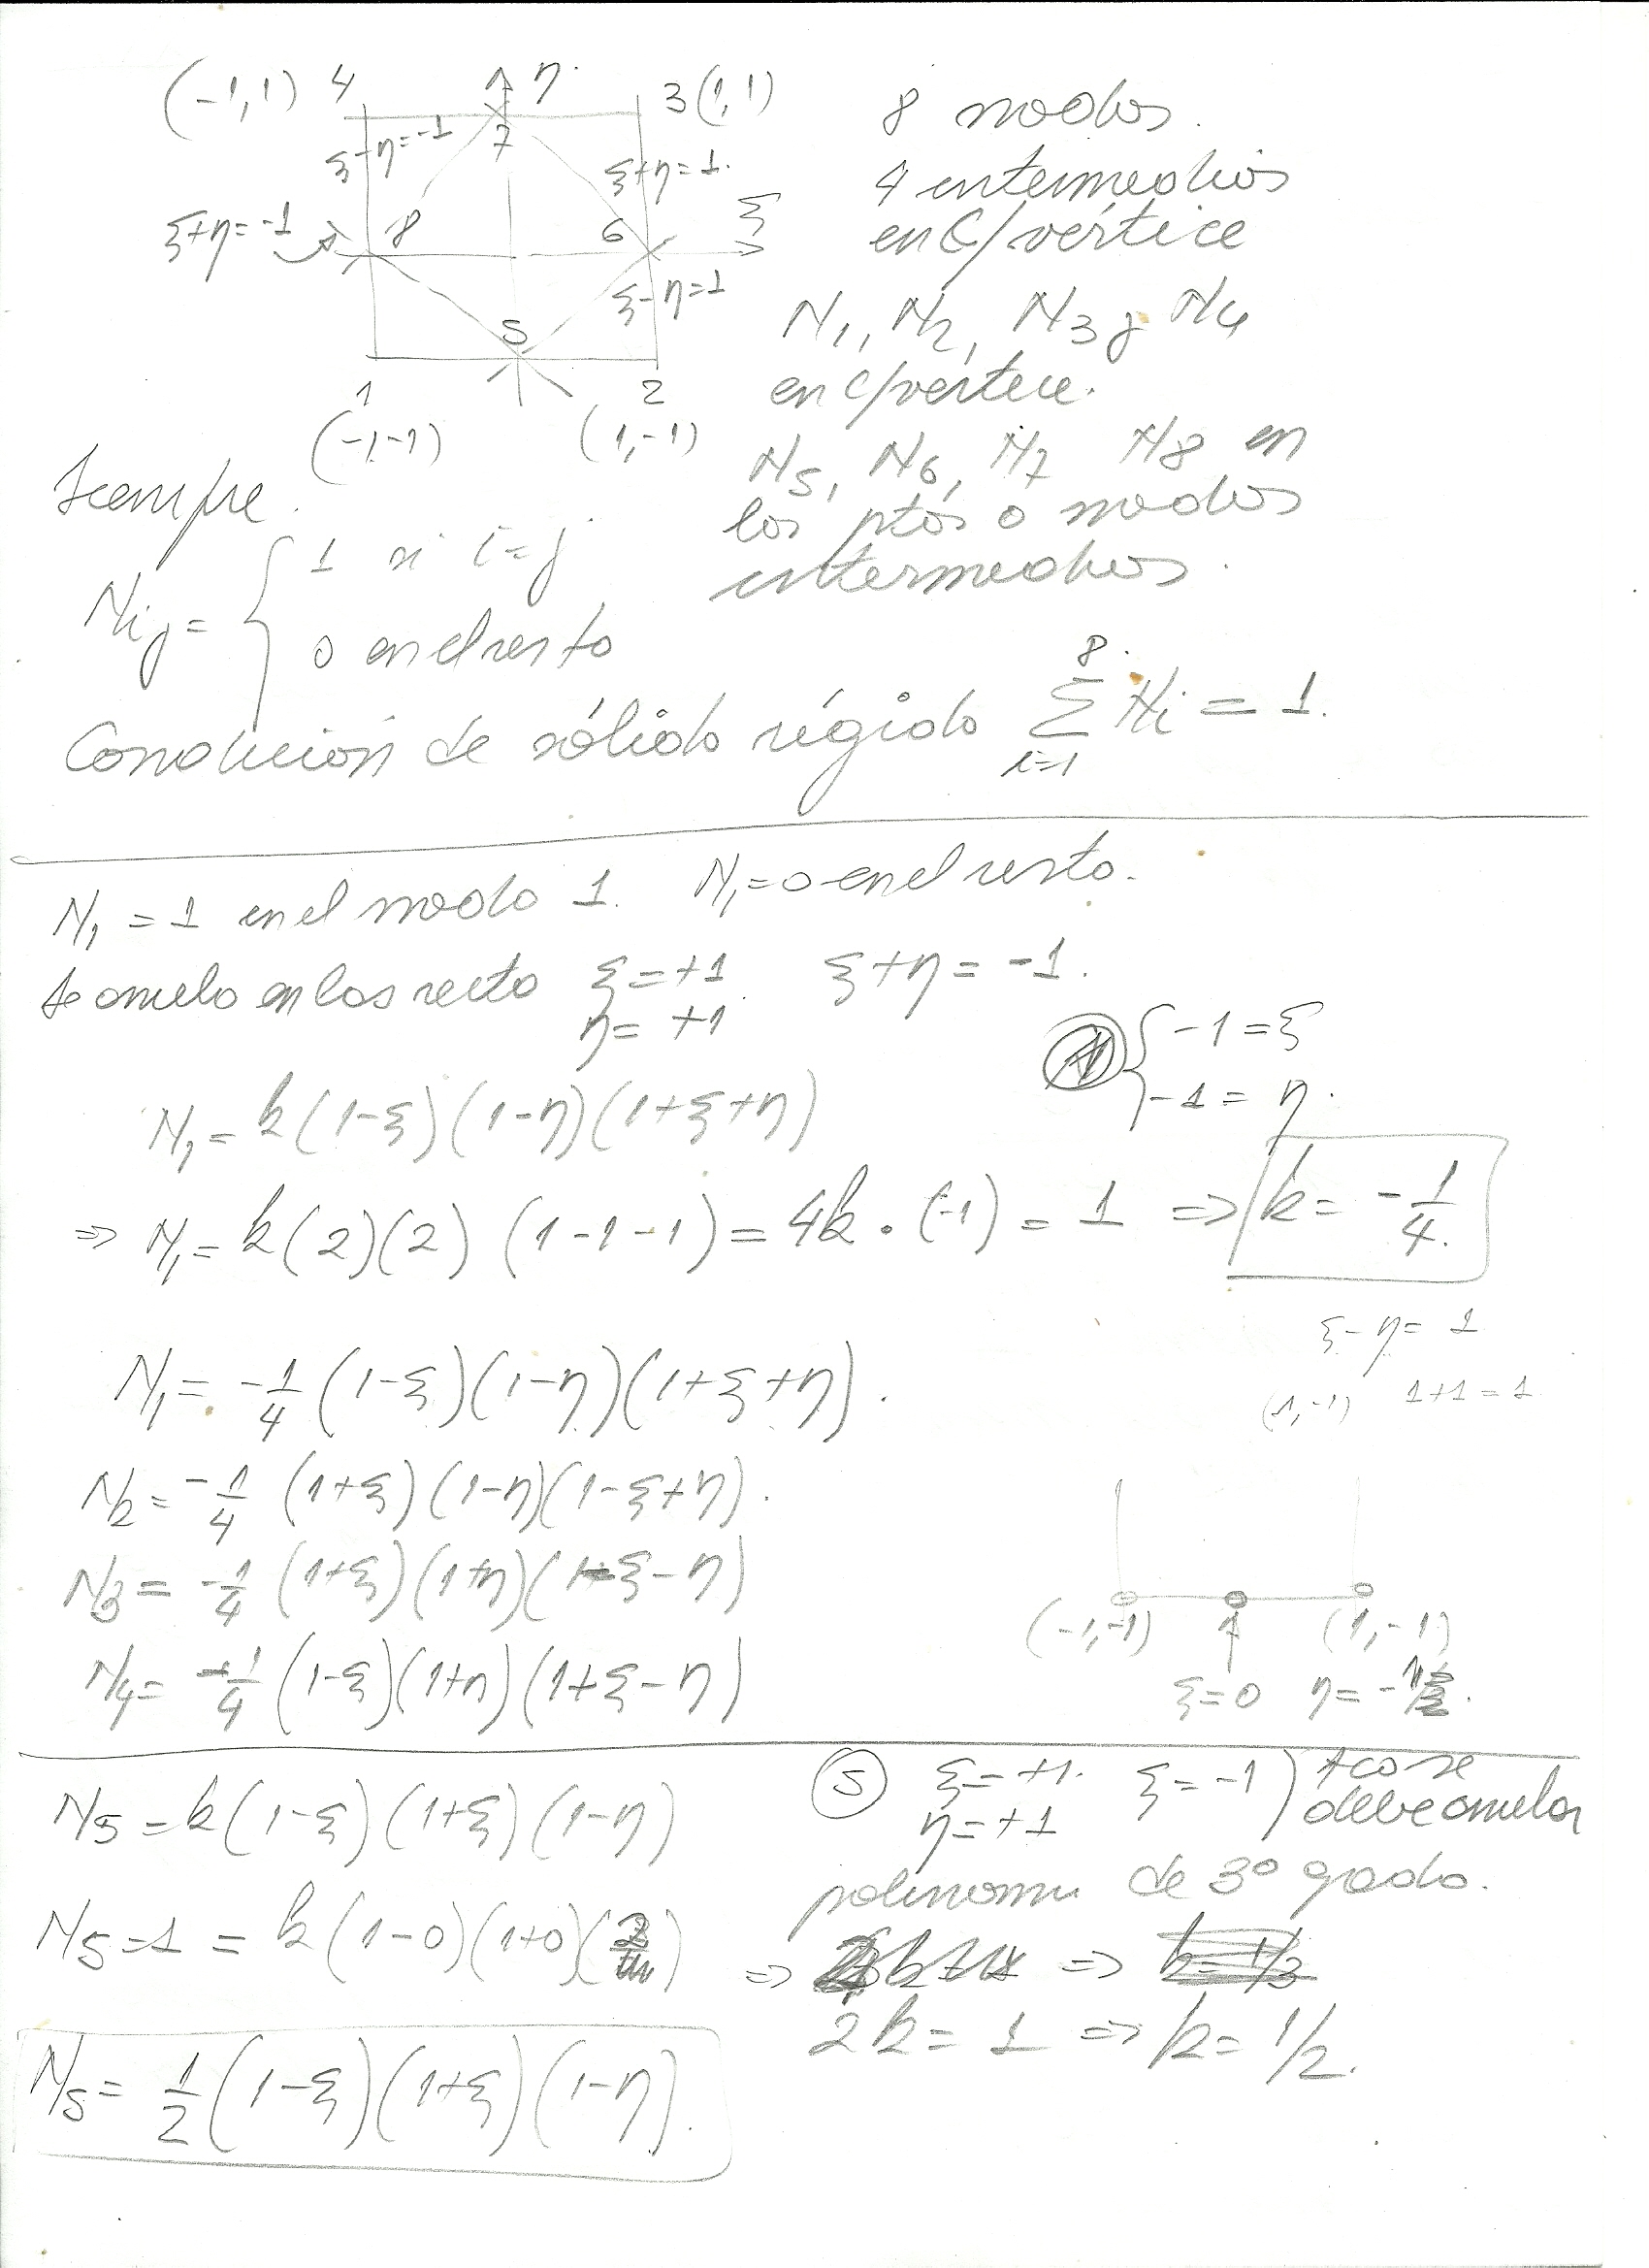 (-1,1) 4 η 3(1,1)
7
ξ-η=-1
ξ+η=1.
ξ+η=-1
8 6 ξ
ξ-η=1
5
1 2
(-1-1) (1,-1)
8 nodos.
4 intermedios
en C/vértice
N1, N2, N3 y N4
en c/vértice.
N5, N6, N7 N8 en
los ptos o nodos
intermedios.
Siempre.
Nij = { 1 si i=j
0 en el resto
Condición de sólido rígido Σ i=1 8 Ni = 1.
N1 = 1 en el nodo 1. N1=0 en el resto.
Se anula en las recta ξ=+1 ξ+η = -1.
η= +1
{ -1=ξ
-1 = η.
N1= k(1-ξ)(1-η)(1+ξ+η)
⇒ N1= k(2)(2) (1-1-1) = 4k·(-1) = 1 ⇒ k= -1/4.
ξ-η= 1
(1,-1) 1+1=1
N1= -1/4 (1-ξ)(1-η)(1+ξ+η).
N2= -1/4 (1+ξ)(1-η)(1-ξ+η).
N3= -1/4 (1+ξ)(1+η)(1-ξ-η)
N4= -1/4 (1-ξ)(1+η)(1+ξ-η)
(-1,-1) 1 (1,-1)
ξ=0 η=-1
N5=k(1-ξ)(1+ξ)(1-η)
(5) ξ=+1. ξ=-1) se
η=+1 debe anular
polinomu de 3º gado.
N5=1 = k(1-0)(1+0)(2) ⇒ ⇒ k=1/3
2k=1 ⇒ k=1/2.
N5= 1/2 (1-ξ)(1+ξ)(1-η).